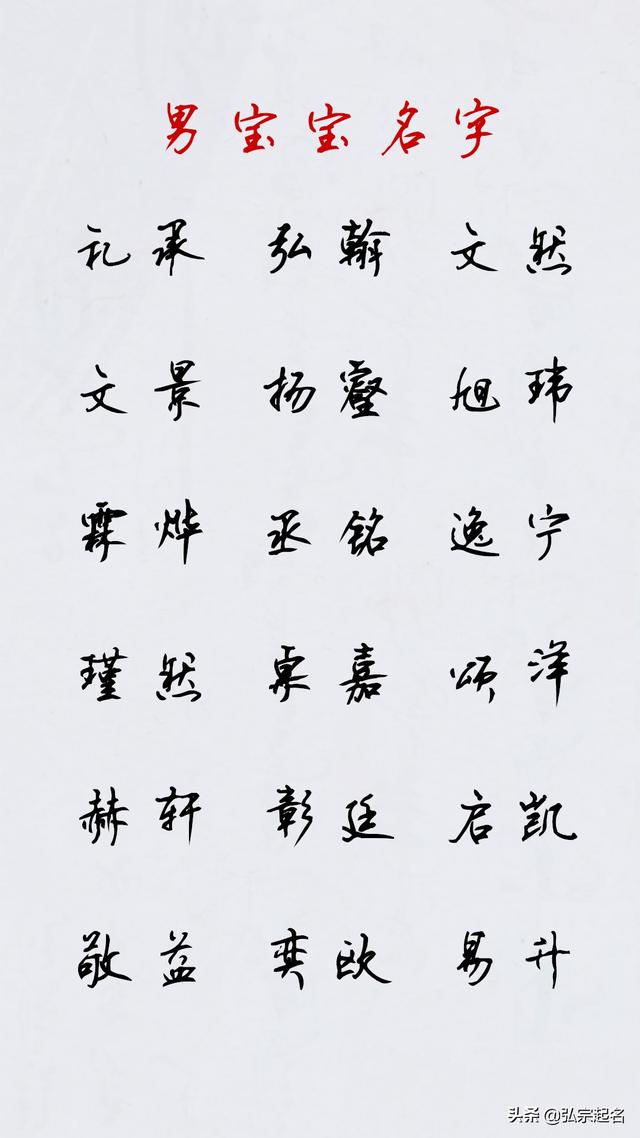 男宝宝名字
礼承 弘翰 文然
文景 扬睿 旭玮
霖烨 丞铭 逸宁
瑾然 卓嘉 颂洋
赫轩 彰廷 启凯
敬益 奕欧 易升
头条 @弘宗起名